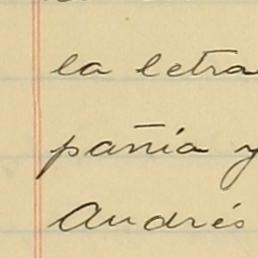 la letra
pañía y
Andrés